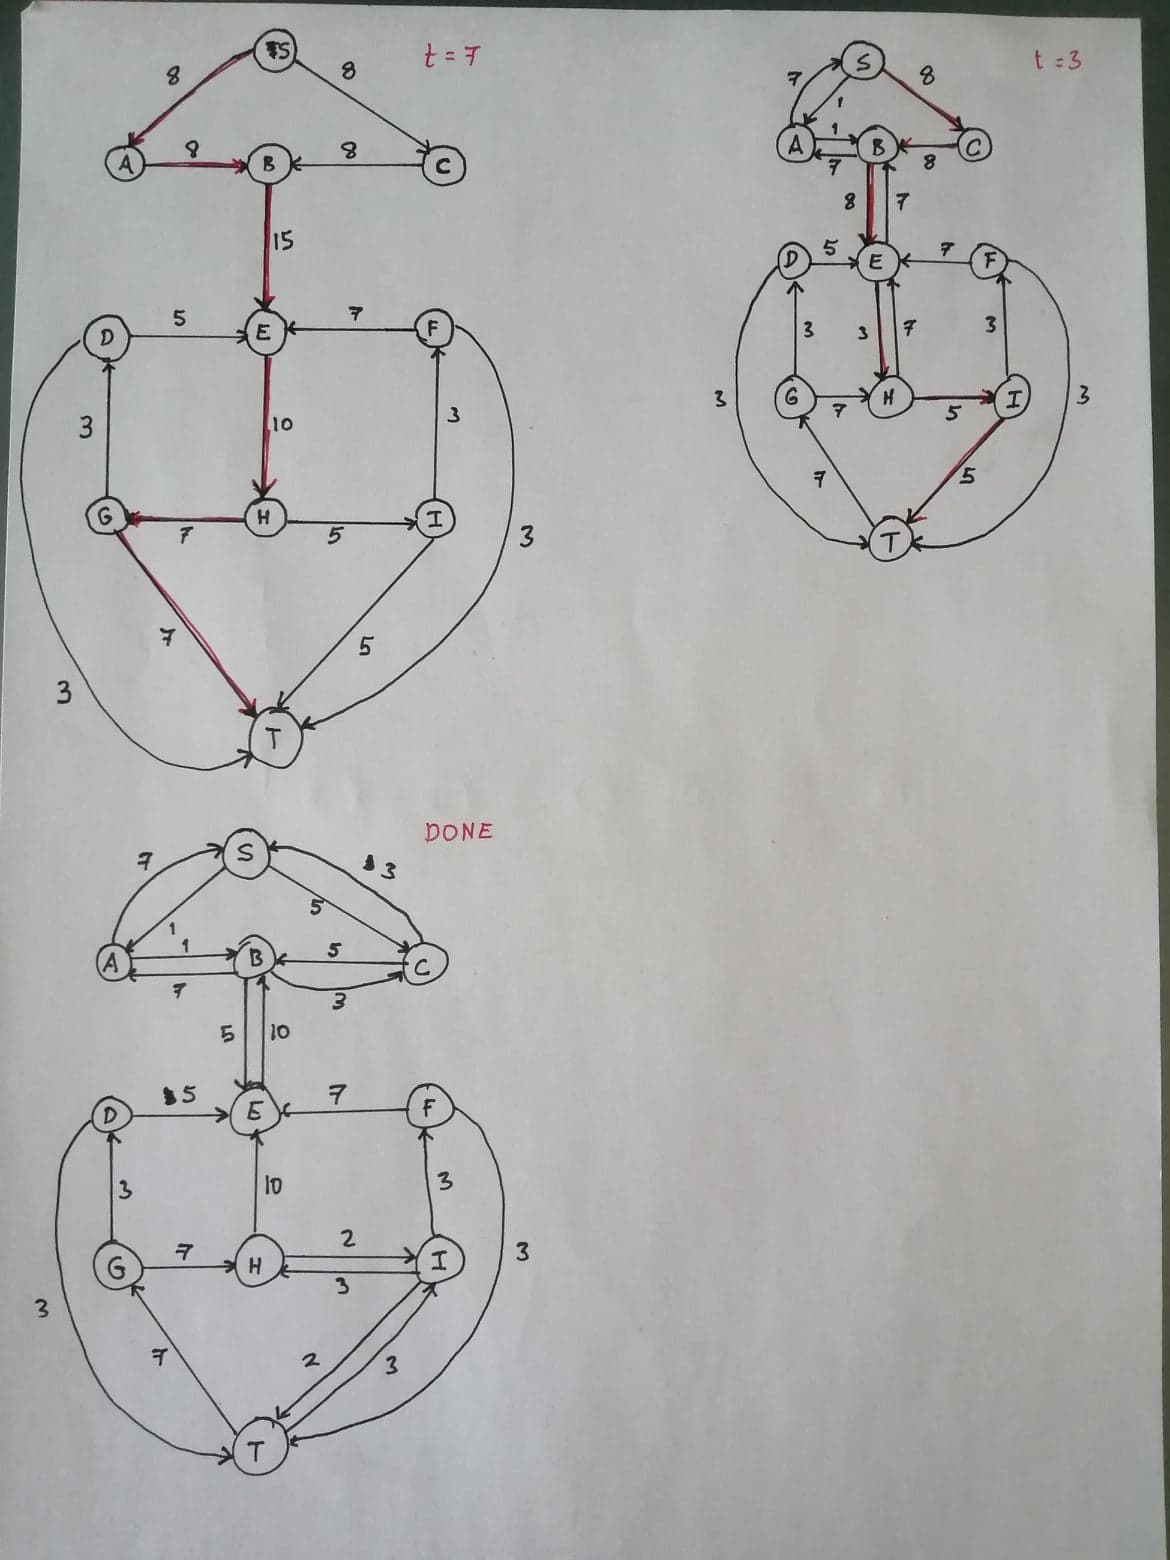 S t = 7
8 8
A 8 B 8 C
15
D 5 E 7 F
3 10 3
G 7 H 5 I
3
7 5
3
T
S t = 3
7 1 8
A 1 B C
7 8
8 7
D 5 E 7 F
3 3 7 3
3 G 7 H 5 I 3
7 5
T
DONE
S
7 3
1 5
A 1 B 5 C
7 3
5 10
D 5 E 7 F
3 10 3
G 7 H 2 I 3
3
3
7 2 3
T